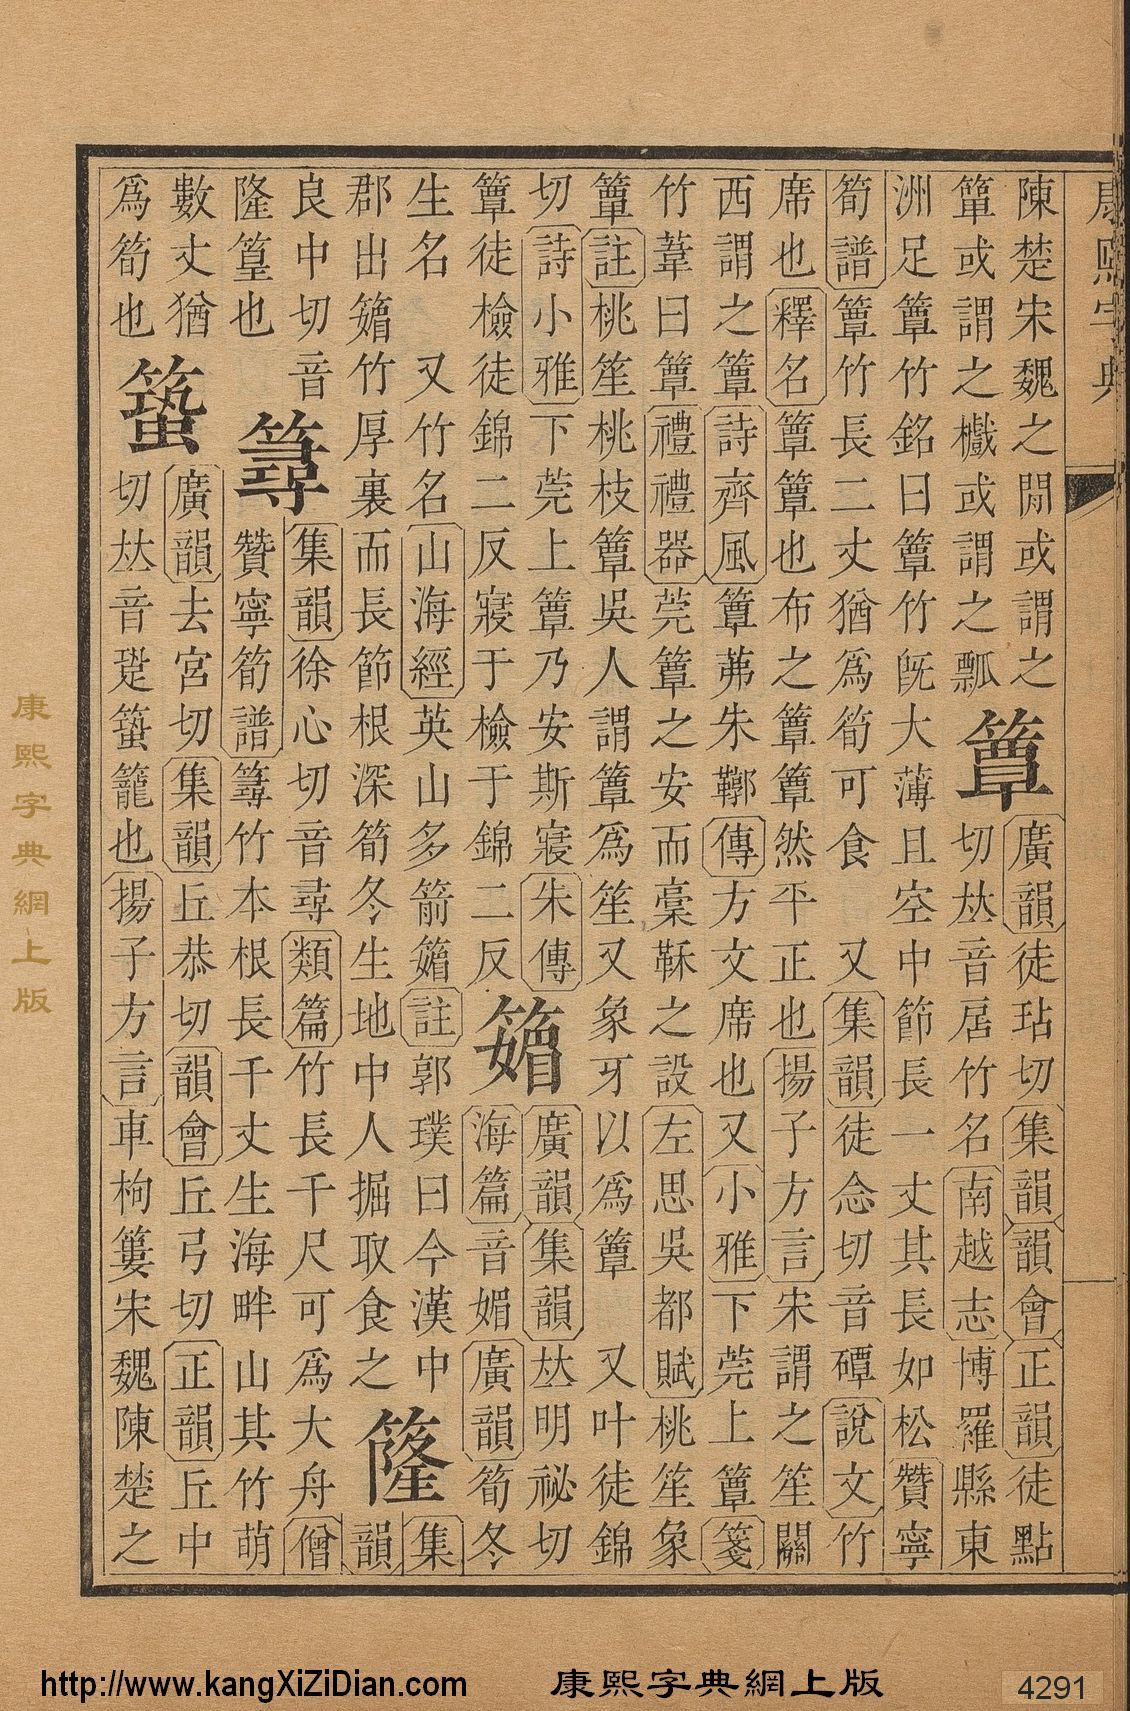 康熙字典
陳楚宋魏之閒或謂之
簞或謂之㰕或謂之瓢
簟
廣韻徒玷切集韻韻會正韻徒點
切𠀤音居竹名南越志博羅縣東
洲足簟竹銘曰簟竹旣大薄且空中節長一丈其長如松贊寧
筍譜簟竹長二丈猶爲筍可食 又集韻徒念切音磹說文竹
席也釋名簟簟也布之簟簟然平正也揚子方言宋謂之笙關
西謂之簟詩齊風簟茀朱鞹傳方文席也又小雅下莞上簟箋
竹葦曰簟禮禮器莞簟之安而稾鞂之設左思吳都賦桃笙象
簟註桃笙桃枝簟吳人謂簟爲笙又象牙以爲簟 又叶徒錦
切詩小雅下莞上簟乃安斯寢朱傳
簟徒檢徒錦二反寢于檢于錦二反
䉋
廣韻集韻𠀤明祕切
海篇音媚廣韻筍冬
生名 又竹名山海經英山多箭䉋註郭璞曰今漢中
郡出䉋竹厚裏而長節根深筍冬生地中人掘取食之
集
韻
良中切音
隆篁也
集韻徐心切音尋類篇竹長千尺可爲大舟僧
贊寧筍譜竹本根長千丈生海畔山其竹萌
數丈猶
爲筍也
廣韻去宮切集韻丘恭切韻會丘弓切正韻丘中
切𠀤音跫籠也揚子方言車枸簍宋魏陳楚之
康熙字典網上版
http://www.kangXiZiDian.com
康熙字典網上版
4291